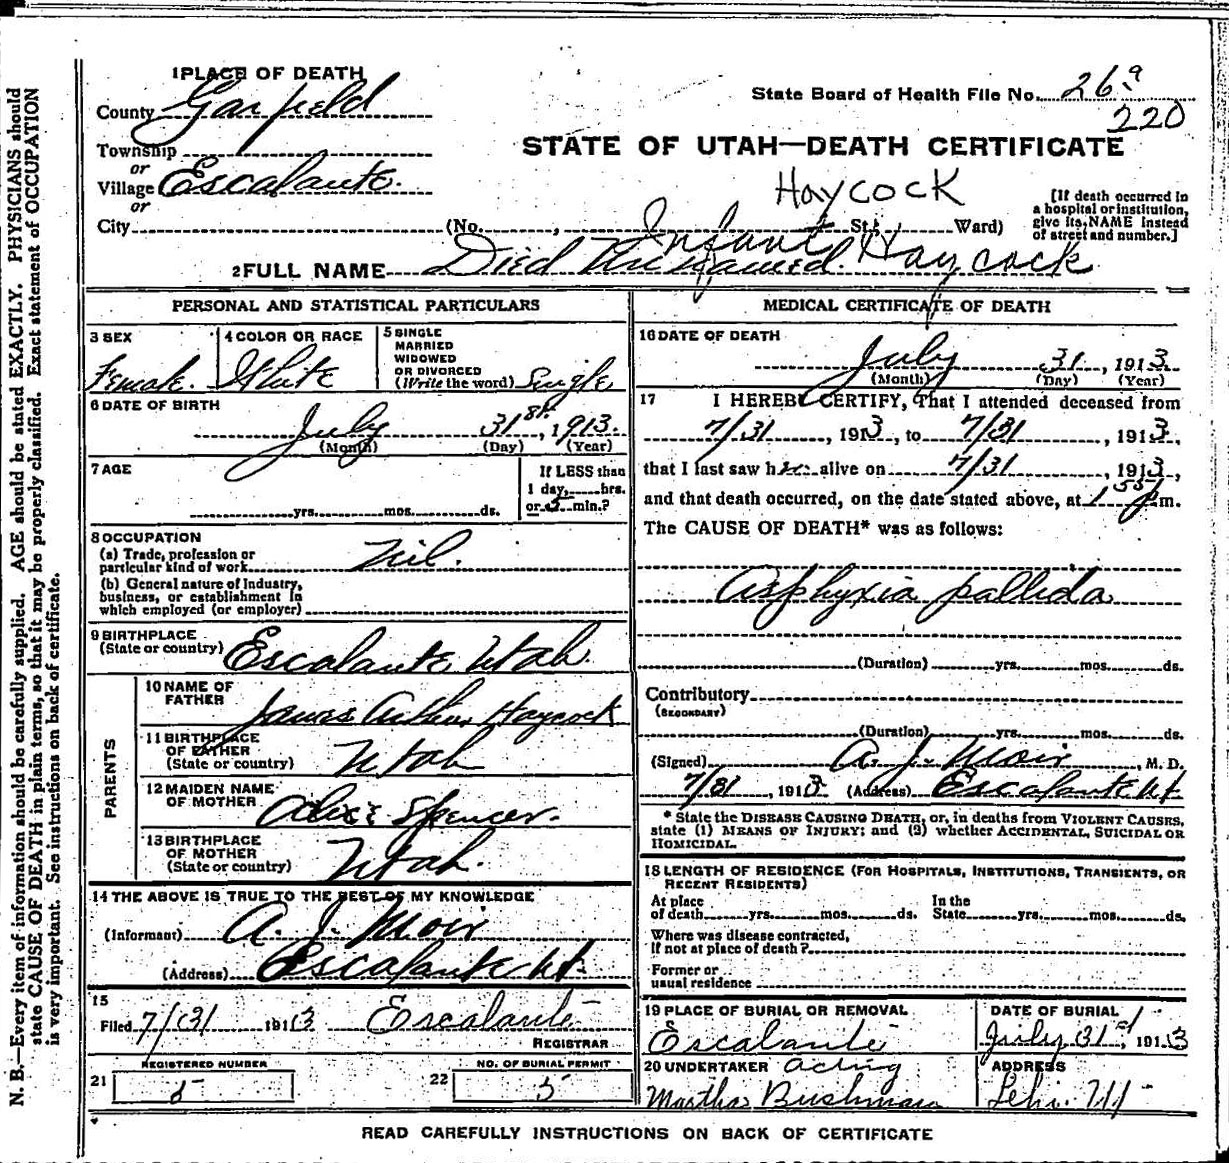 1 PLACE OF DEATH
County Garfield
State Board of Health File No. 26a
220
Township
or
Village Escalante.
or
City (No. , St; Ward)
STATE OF UTAH—DEATH CERTIFICATE
Haycock
[If death occurred in a hospital or institution, give its NAME instead of street and number.]
Infant
2 FULL NAME Died Unnamed. Haycock
PERSONAL AND STATISTICAL PARTICULARS
3 SEX
Female.
4 COLOR OR RACE
White
5 SINGLE
MARRIED
WIDOWED
OR DIVORCED
(Write the word) Single
6 DATE OF BIRTH
July 31st, 1913.
(Month) (Day) (Year)
7 AGE
yrs. mos. ds.
If LESS than
1 day, hrs.
or 5 min.?
8 OCCUPATION
(a) Trade, profession or
particular kind of work Nil.
(b) General nature of Industry,
business, or establishment in
which employed (or employer)
9 BIRTHPLACE
(State or country) Escalante Utah.
PARENTS
10 NAME OF
FATHER
James Arthur Haycock
11 BIRTHPLACE
OF FATHER
(State or country) Utah
12 MAIDEN NAME
OF MOTHER Alice Spencer.
13 BIRTHPLACE
OF MOTHER
(State or country) Utah.
14 THE ABOVE IS TRUE TO THE BEST OF MY KNOWLEDGE
(Informant) A. J. Moir
(Address) Escalante Ut.
15
Filed 7/31 1913 Escalante
REGISTRAR
REGISTERED NUMBER
21 5
NO. OF BURIAL PERMIT
22 5
MEDICAL CERTIFICATE OF DEATH
16 DATE OF DEATH
July 31, 1913
(Month) (Day) (Year)
17 I HEREBY CERTIFY, That I attended deceased from
7/31, 1913, to 7/31, 1913,
that I last saw her alive on 7/31, 1913,
and that death occurred, on the date stated above, at 1 55 pm.
The CAUSE OF DEATH* was as follows:
Asphyxia pallida
(Duration) yrs. mos. ds.
Contributory
(SECONDARY)
(Duration) yrs. mos. ds.
(Signed) A. J. Moir, M. D.
7/31, 1913 (Address) Escalante Ut
* State the DISEASE CAUSING DEATH, or, in deaths from VIOLENT CAUSES,
state (1) MEANS OF INJURY; and (2) whether ACCIDENTAL, SUICIDAL OR
HOMICIDAL.
18 LENGTH OF RESIDENCE (FOR HOSPITALS, INSTITUTIONS, TRANSIENTS, OR
RECENT RESIDENTS)
At place In the
of death yrs. mos. ds. State yrs. mos. ds.
Where was disease contracted,
If not at place of death?
Former or
usual residence
19 PLACE OF BURIAL OR REMOVAL
Escalante
DATE OF BURIAL
July 31st, 1913
20 UNDERTAKER Acting
Martha Bushman
ADDRESS
Lehi.
READ CAREFULLY INSTRUCTIONS ON BACK OF CERTIFICATE
N. B.—Every item of information should be carefully supplied. AGE should be stated EXACTLY. PHYSICIANS should
state CAUSE OF DEATH in plain terms, so that it may be properly classified. Exact statement of OCCUPATION
is very important. See instructions on back of certificate.